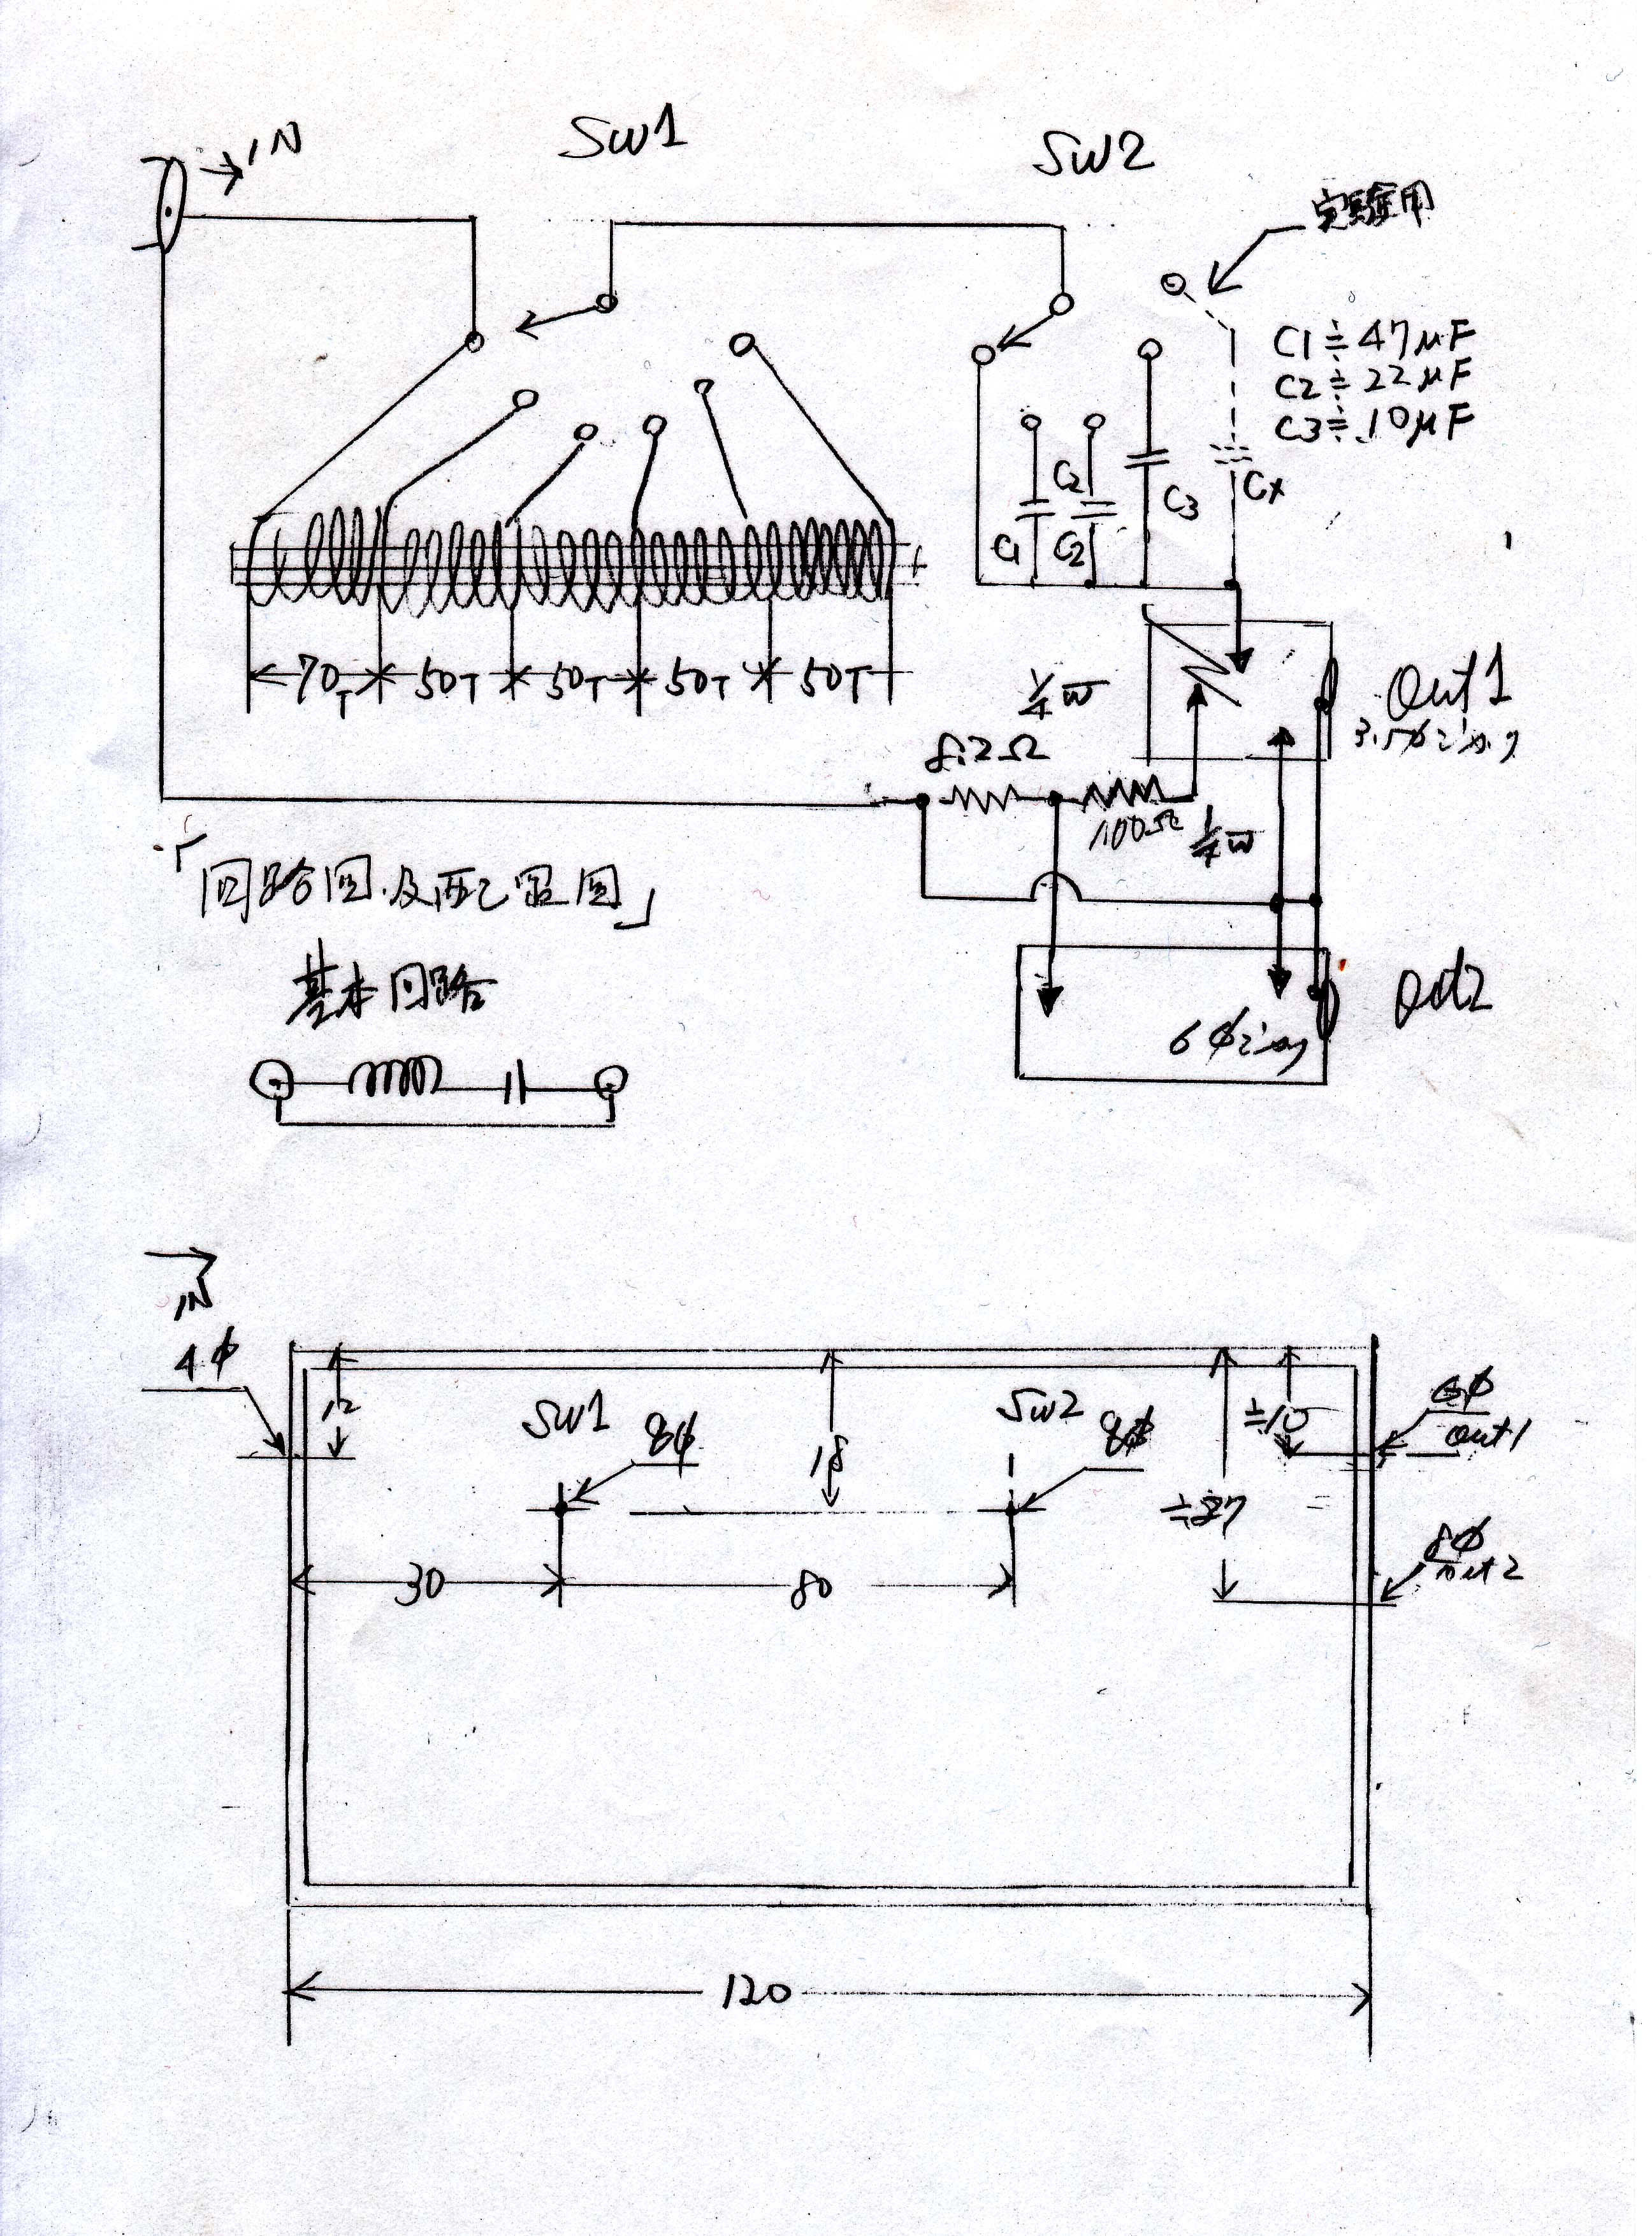 →IN
SW1
SW2
実験用
C1≒47μF
C2≒22μF
C3≒10μF
C1
C2
C2
C3
Cx
70T
50T
50T
50T
50T
1/4W
8.2Ω
100Ω
1/4W
Out1
3.5φ
「回路図及配置図」
基本回路
Out2
6φ
IN
4φ
12
SW1
8φ
18
SW2
8φ
≒10
6φ
out1
8φ
out2
30
80
120